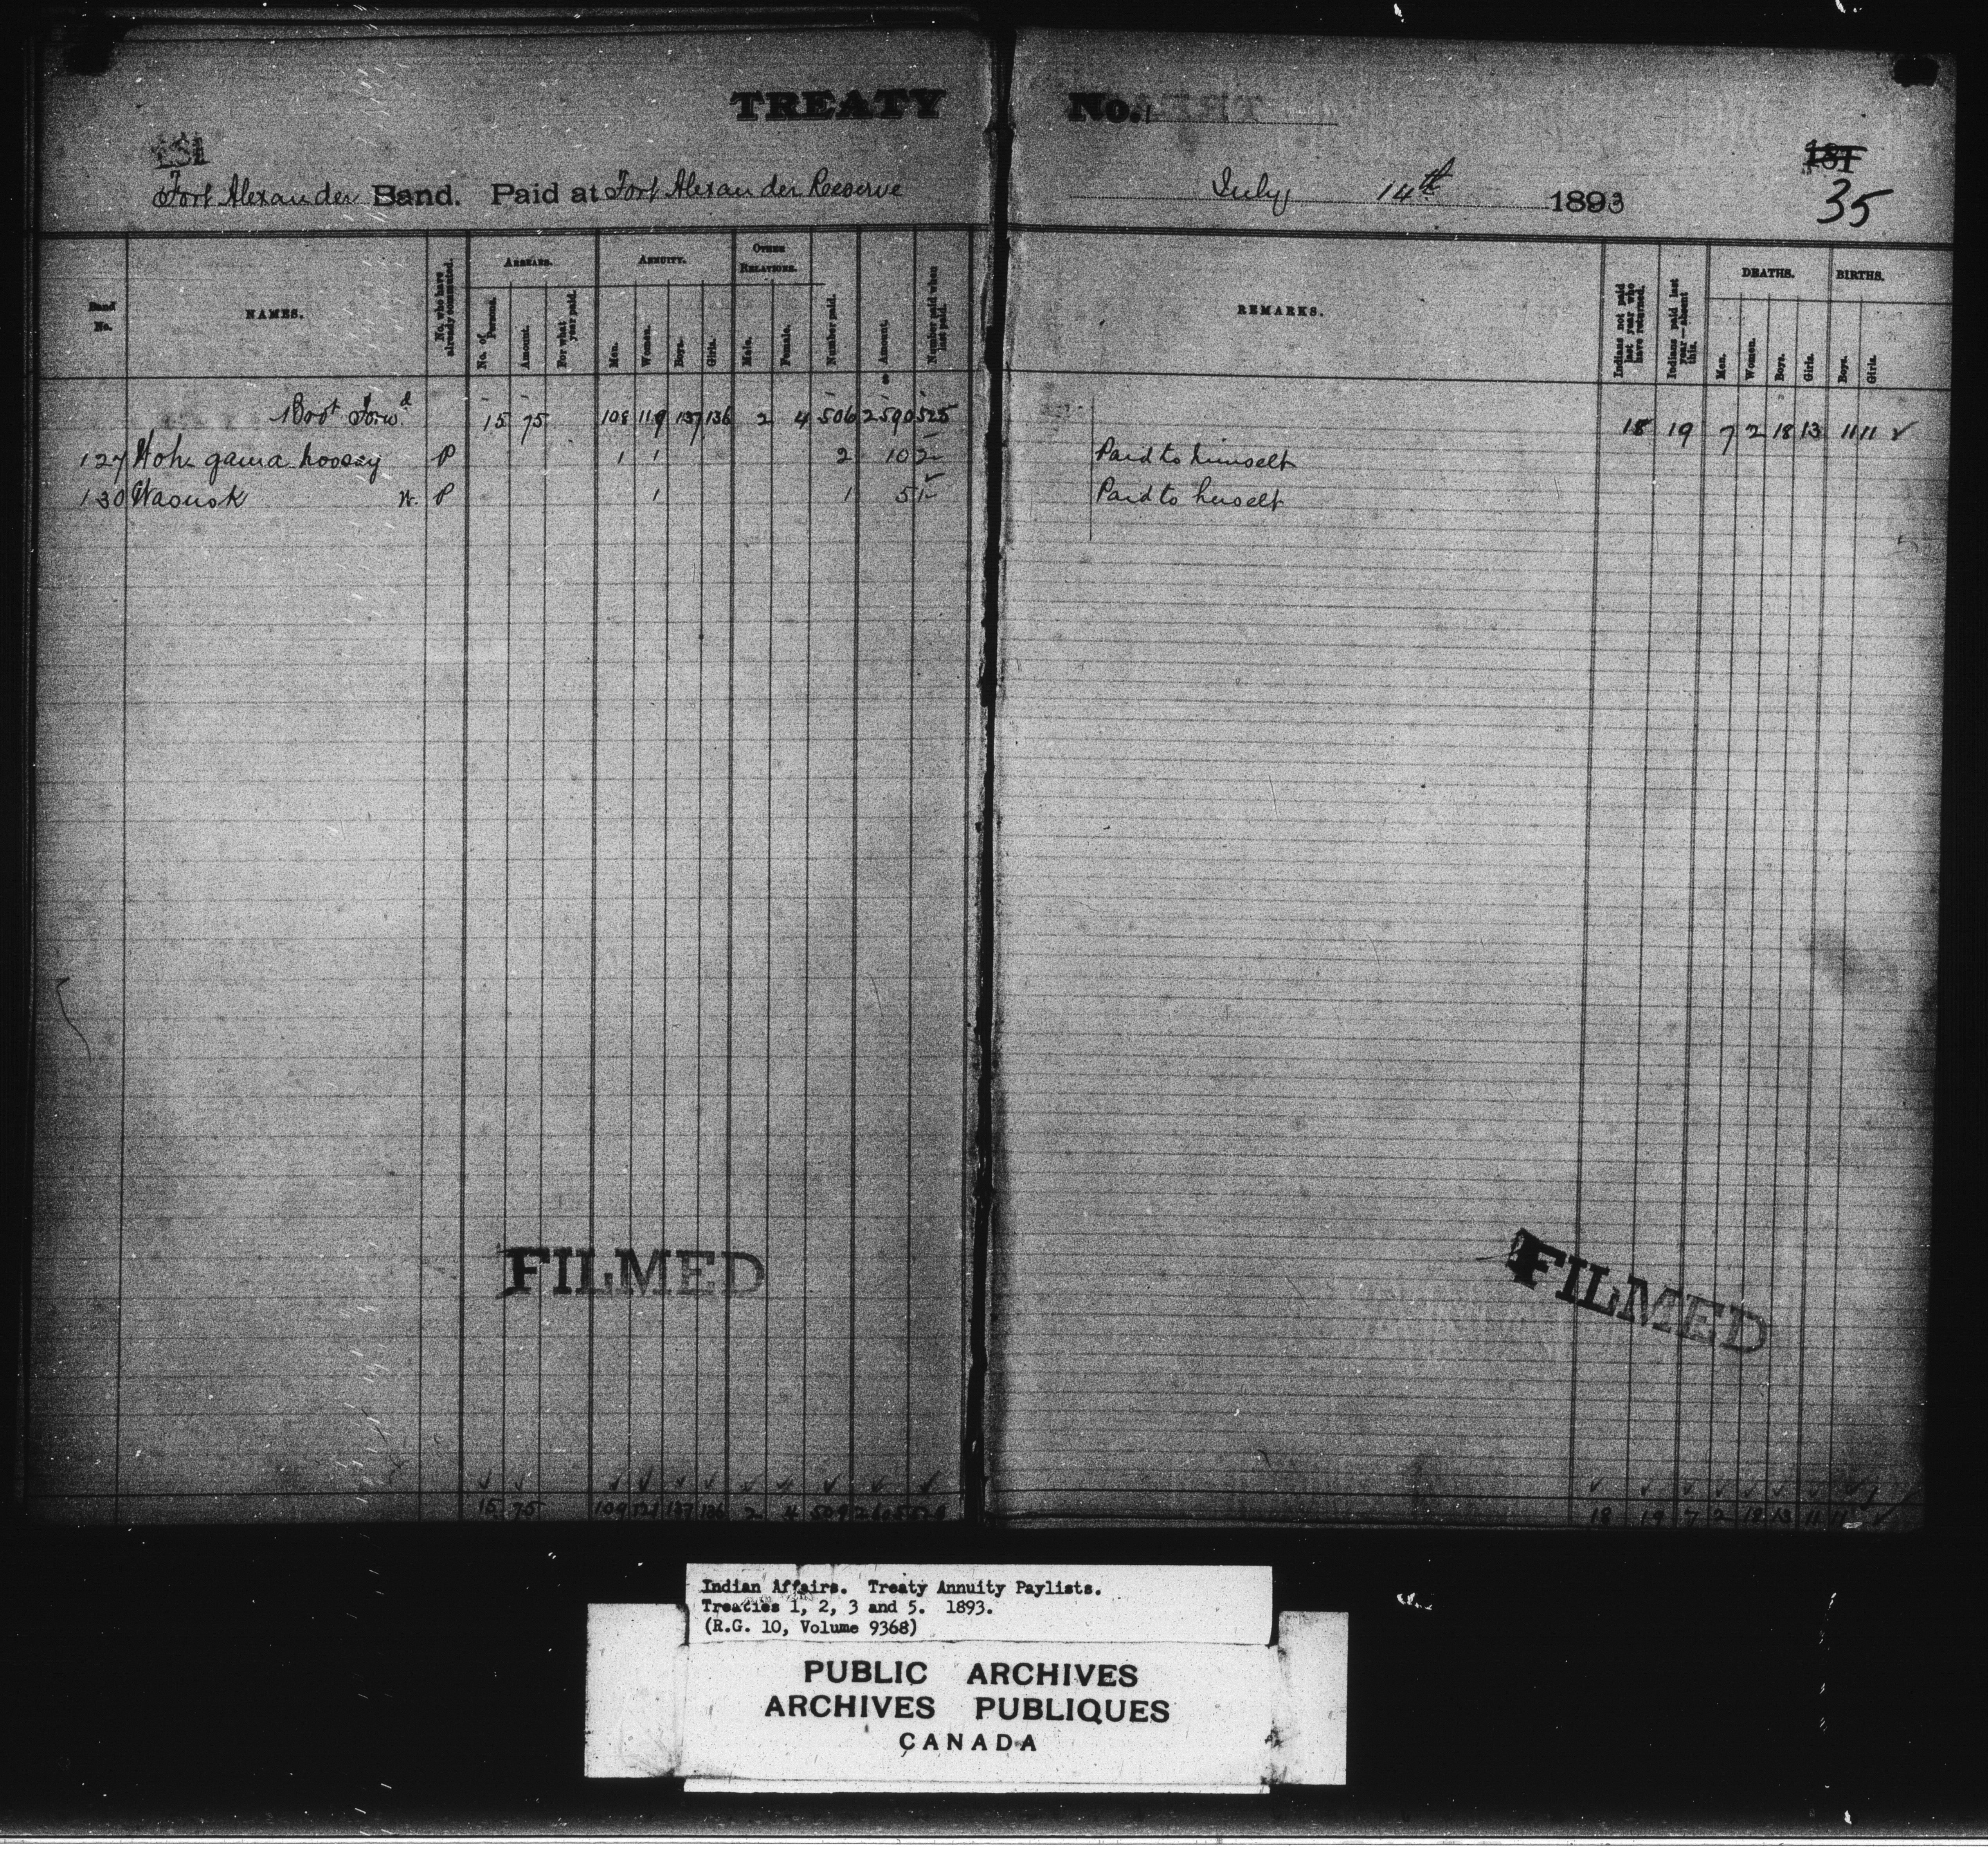 TREATY No. 1
181
181
35
Fort Alexander Band. Paid at Fort Alexander Reserve July 14th 1893
Band No. NAMES. No. who have already commuted. ARREARS. No. of Persons. Amount. For what year paid. ANNUITY. Men. Women. Boys. Girls. OTHER RELATIONS. Male. Female. Number paid. Amount. Number paid when last paid. REMARKS. Indians not paid last year who have returned. Indians paid last year—absent this. DEATHS. Men. Women. Boys. Girls. BIRTHS. Boys. Girls.
Brot Forwd 15 75 108 119 137 136 2 4 506 2590 525 18 19 7 2 18 13 11 11 ✓
127 P 1 1 2 10 2 Paid to himself
130 Wasusk W. P 1 1 5 1 Paid to herself
FILMED
FILMED
15 75 109 121 137 136 2 4 509 2605 528 18 19 7 2 18 13 11 11 ✓
Indian Affairs. Treaty Annuity Paylists.
Treaties 1, 2, 3 and 5. 1893.
(R.G. 10, Volume 9368)
PUBLIC ARCHIVES
ARCHIVES PUBLIQUES
CANADA